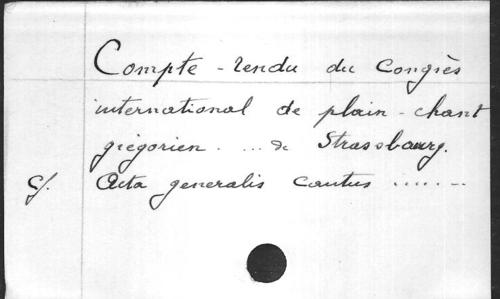 Compte-rendu du Congrès
international de plain-chant
grégorien. ... de Strassbourg.
cf. Acta generalis cantus .......